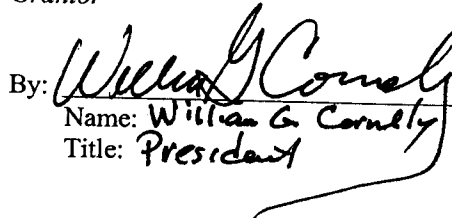 Grantor
By: William G Connelly
Name: William G. Connelly
Title: President